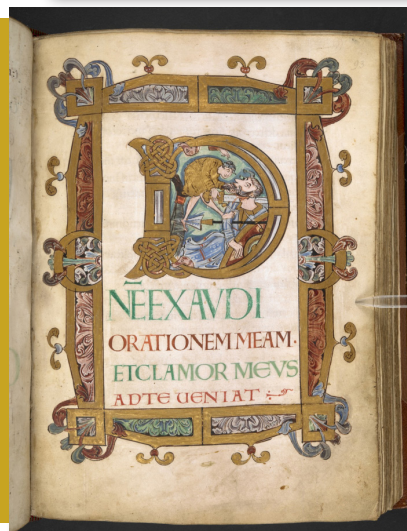 D
NĒEXAVDI
ORATIONEM MEAM.
ETCLAMOR MEVS
ADTE UENIAT